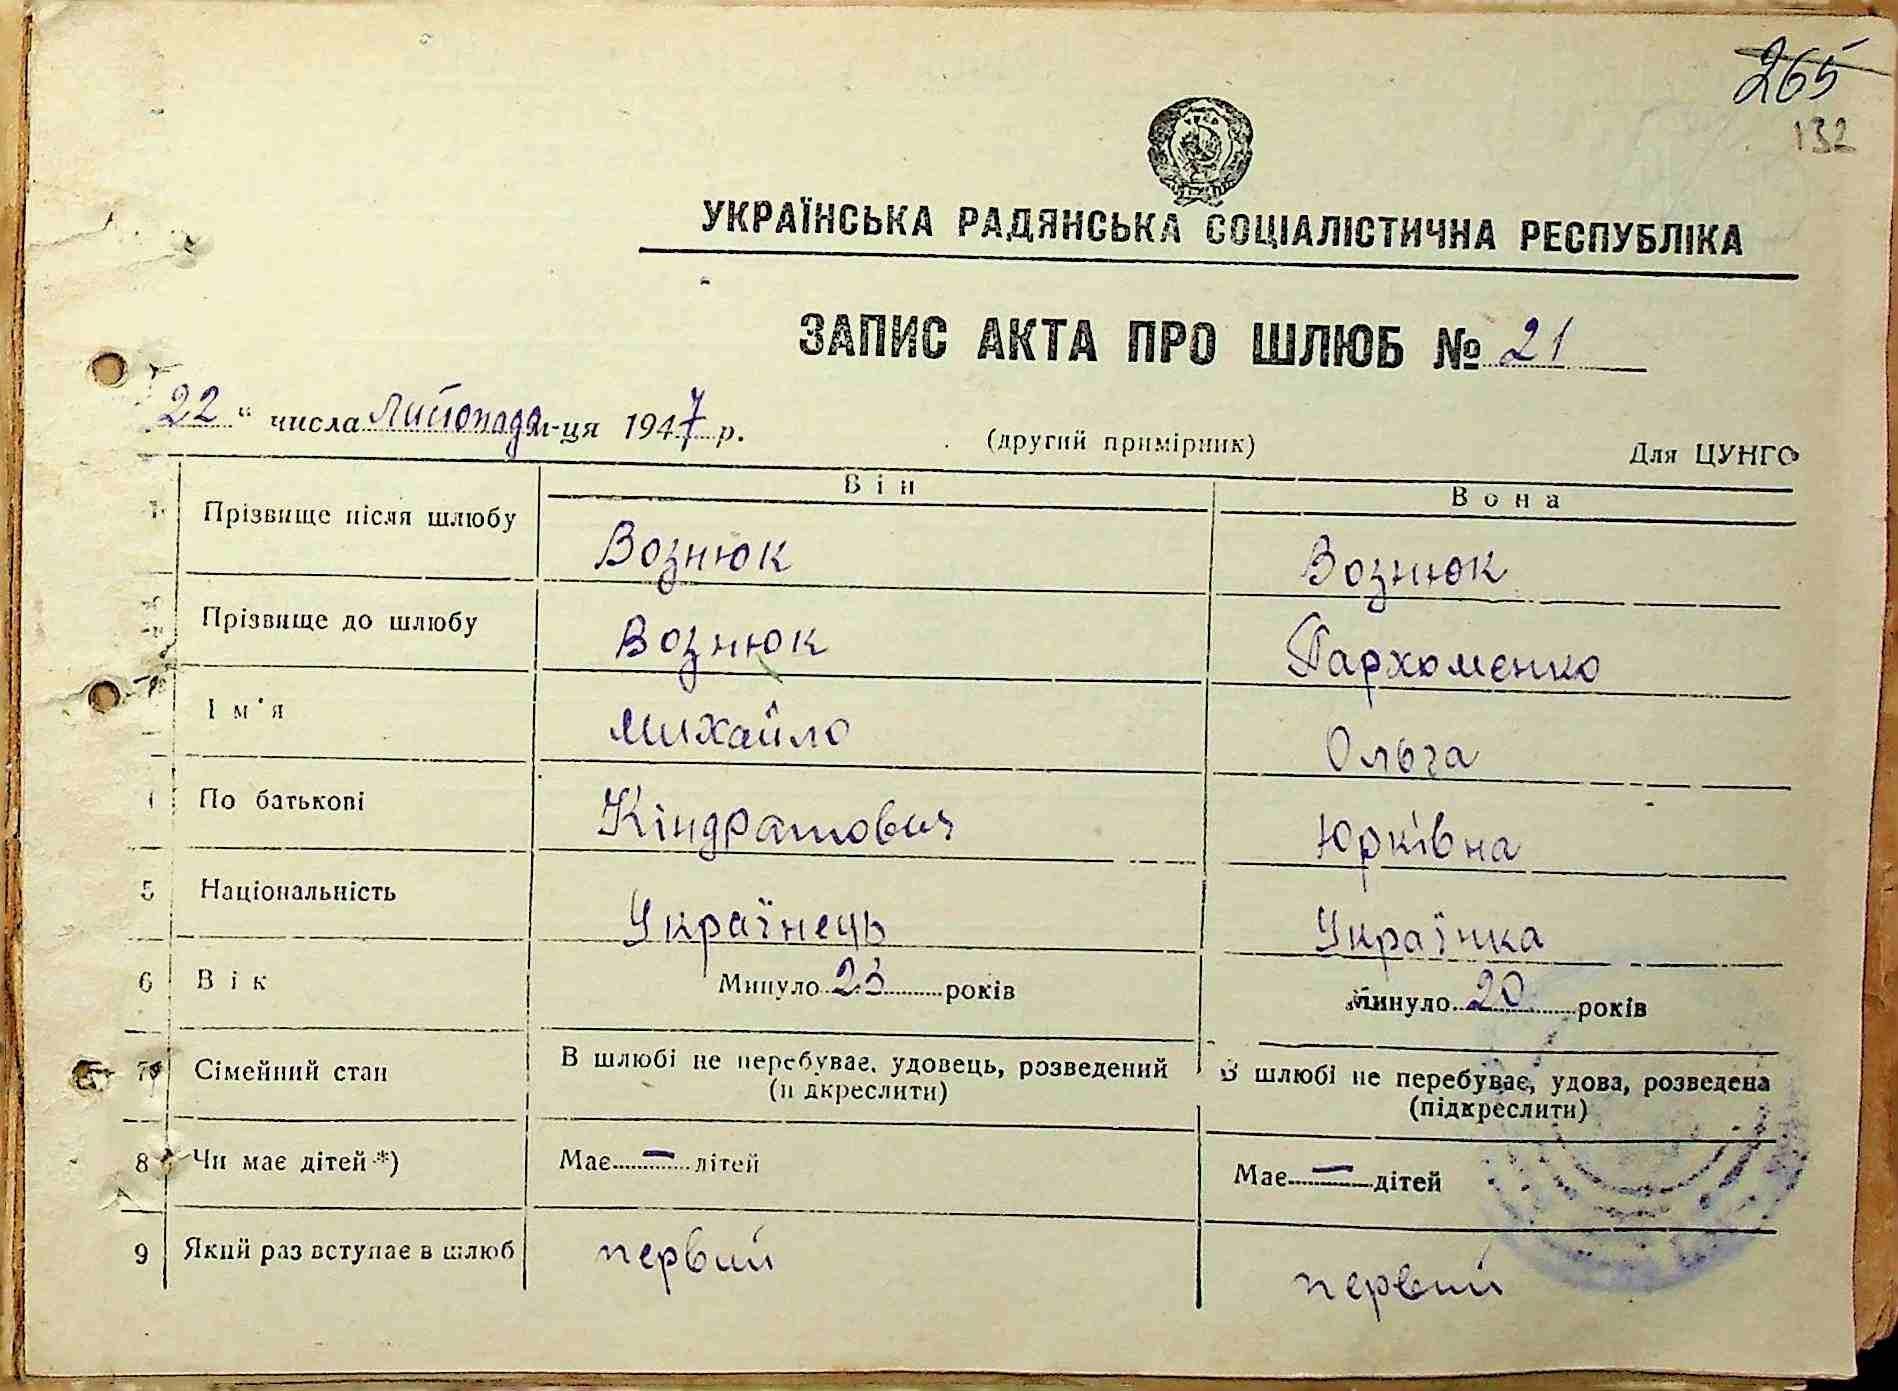 265
132
УКРАЇНСЬКА РАДЯНСЬКА СОЦІАЛІСТИЧНА РЕСПУБЛІКА
ЗАПИС АКТА ПРО ШЛЮБ № 21
22 " числа Листопада м-ця 1947 р. (другий примірник) Для ЦУНГС
Він Вона
1 Прізвище після шлюбу Вознюк Вознюк
Прізвище до шлюбу Вознюк Пархоменко
Ім'я Михайло Ольга
По батькові Кіндратович Юрківна
5 Національність Українець Українка
6 Вік Минуло 23 років Минуло 20 років
7 Сімейний стан В шлюбі не перебуває, удовець, розведений В шлюбі не перебуває, удова, розведена
(п дкреслити) (підкреслити)
8 Чи має дітей *) Має — дітей Має — дітей
9 Який раз вступає в шлюб первий первий